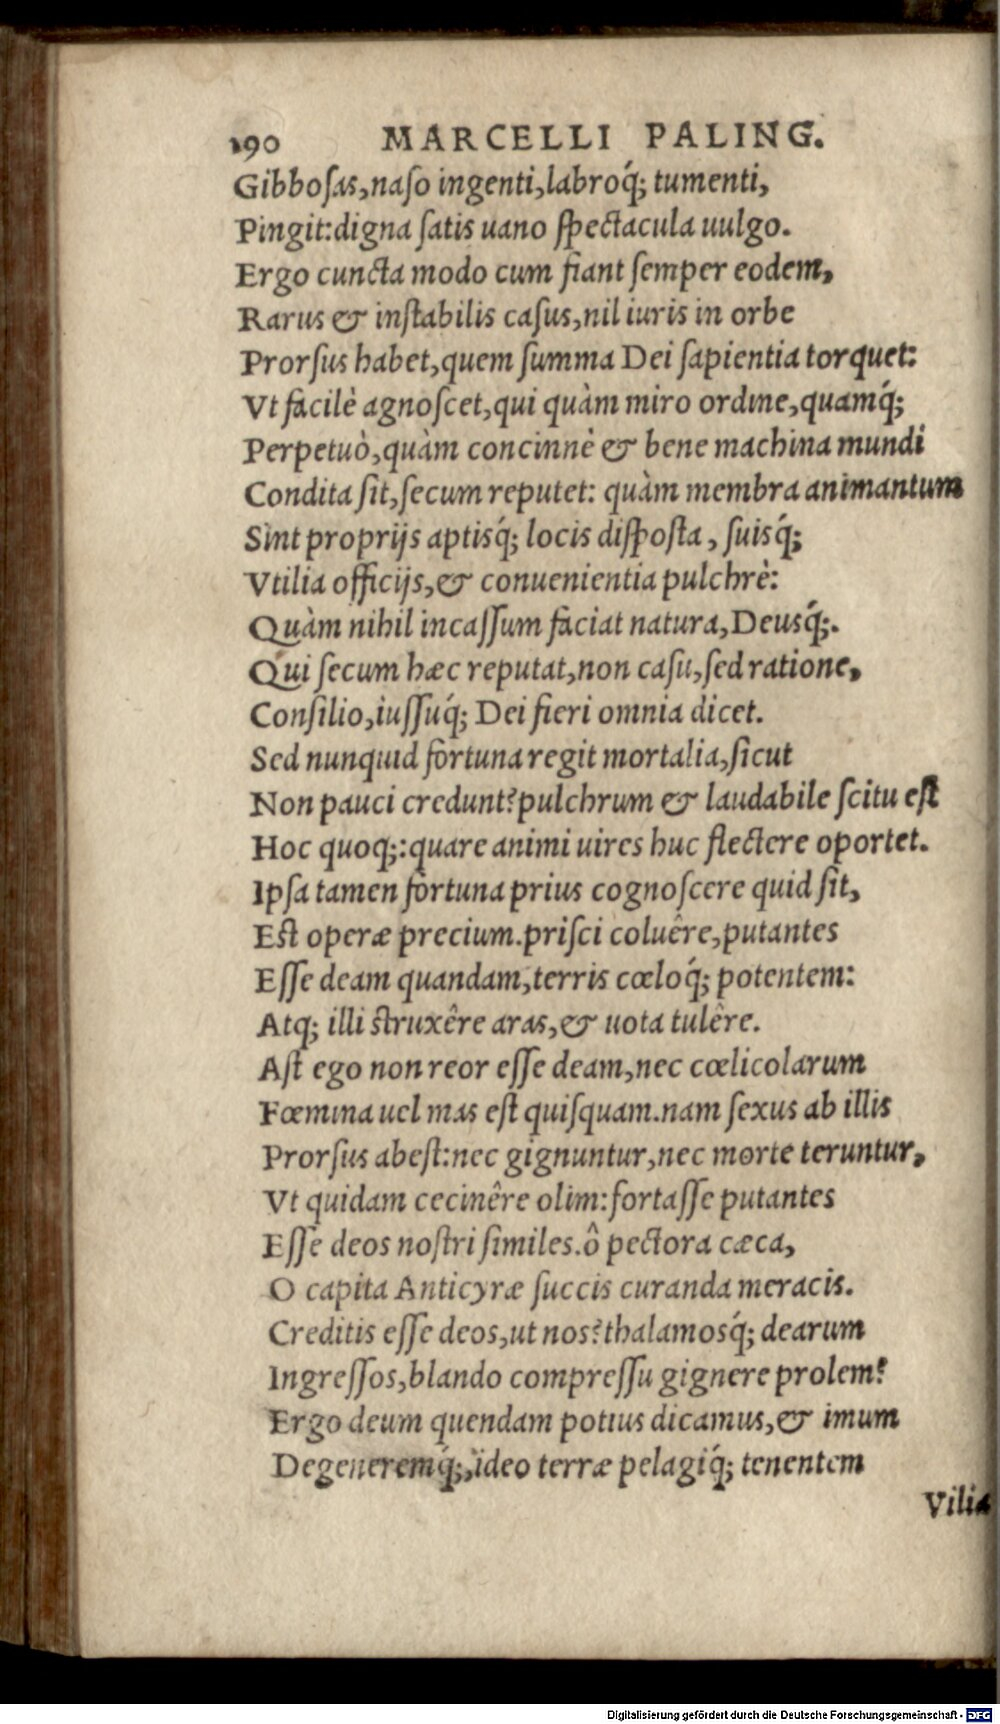 190 MARCELLI PALING.
Gibboſas, naſo ingenti, labroq́; tumenti,
Pingit: digna ſatis uano ſpectacula uulgo.
Ergo cuncta modo cum fiant ſemper eodem,
Rarus & inſtabilis caſus, nil iuris in orbe
Prorſus habet, quem ſumma Dei ſapientia torquet:
Vt facilè agnoſcet, qui quàm miro ordine, quamq́;
Perpetuò, quàm concinnè & bene machina mundi
Condita ſit, ſecum reputet: quàm membra animantum
Sint proprijs aptisq́; locis diſpoſta, ſuisq́;
Vtilia officijs, & conuenientia pulchrè:
Quàm nihil incaſſum faciat natura, Deusq́;.
Qui ſecum hæc reputat, non caſu, ſed ratione,
Conſilio, iuſſuq́; Dei fieri omnia dicet.
Sed nunquid fortuna regit mortalia, ſicut
Non pauci credunt? pulchrum & laudabile ſcitu eſt
Hoc quoq;: quare animi uires huc flectere oportet.
Ipſa tamen fortuna prius cognoſcere quid ſit,
Eſt operæ precium. priſci coluêre, putantes
Eſſe deam quandam, terris cœloq́; potentem:
Atq; illi ſtruxêre aras, & uota tulêre.
Aſt ego non reor eſſe deam, nec cœlicolarum
Fœmina uel mas eſt quiſquam. nam ſexus ab illis
Prorſus abeſt: nec gignuntur, nec morte teruntur,
Vt quidam cecinêre olim: fortaſſe putantes
Eſſe deos noſtri ſimiles. ô pectora cæca,
O capita Anticyræ ſuccis curanda meracis.
Creditis eſſe deos, ut nos? thalamosq́; dearum
Ingreſſos, blando compreſſu gignere prolem?
Ergo deum quendam potius dicamus, & imum
Degeneremq́;, ideo terræ pelagiq́; tenentem
Vilia
Digitalisierung gefördert durch die Deutsche Forschungsgemeinschaft - DFG